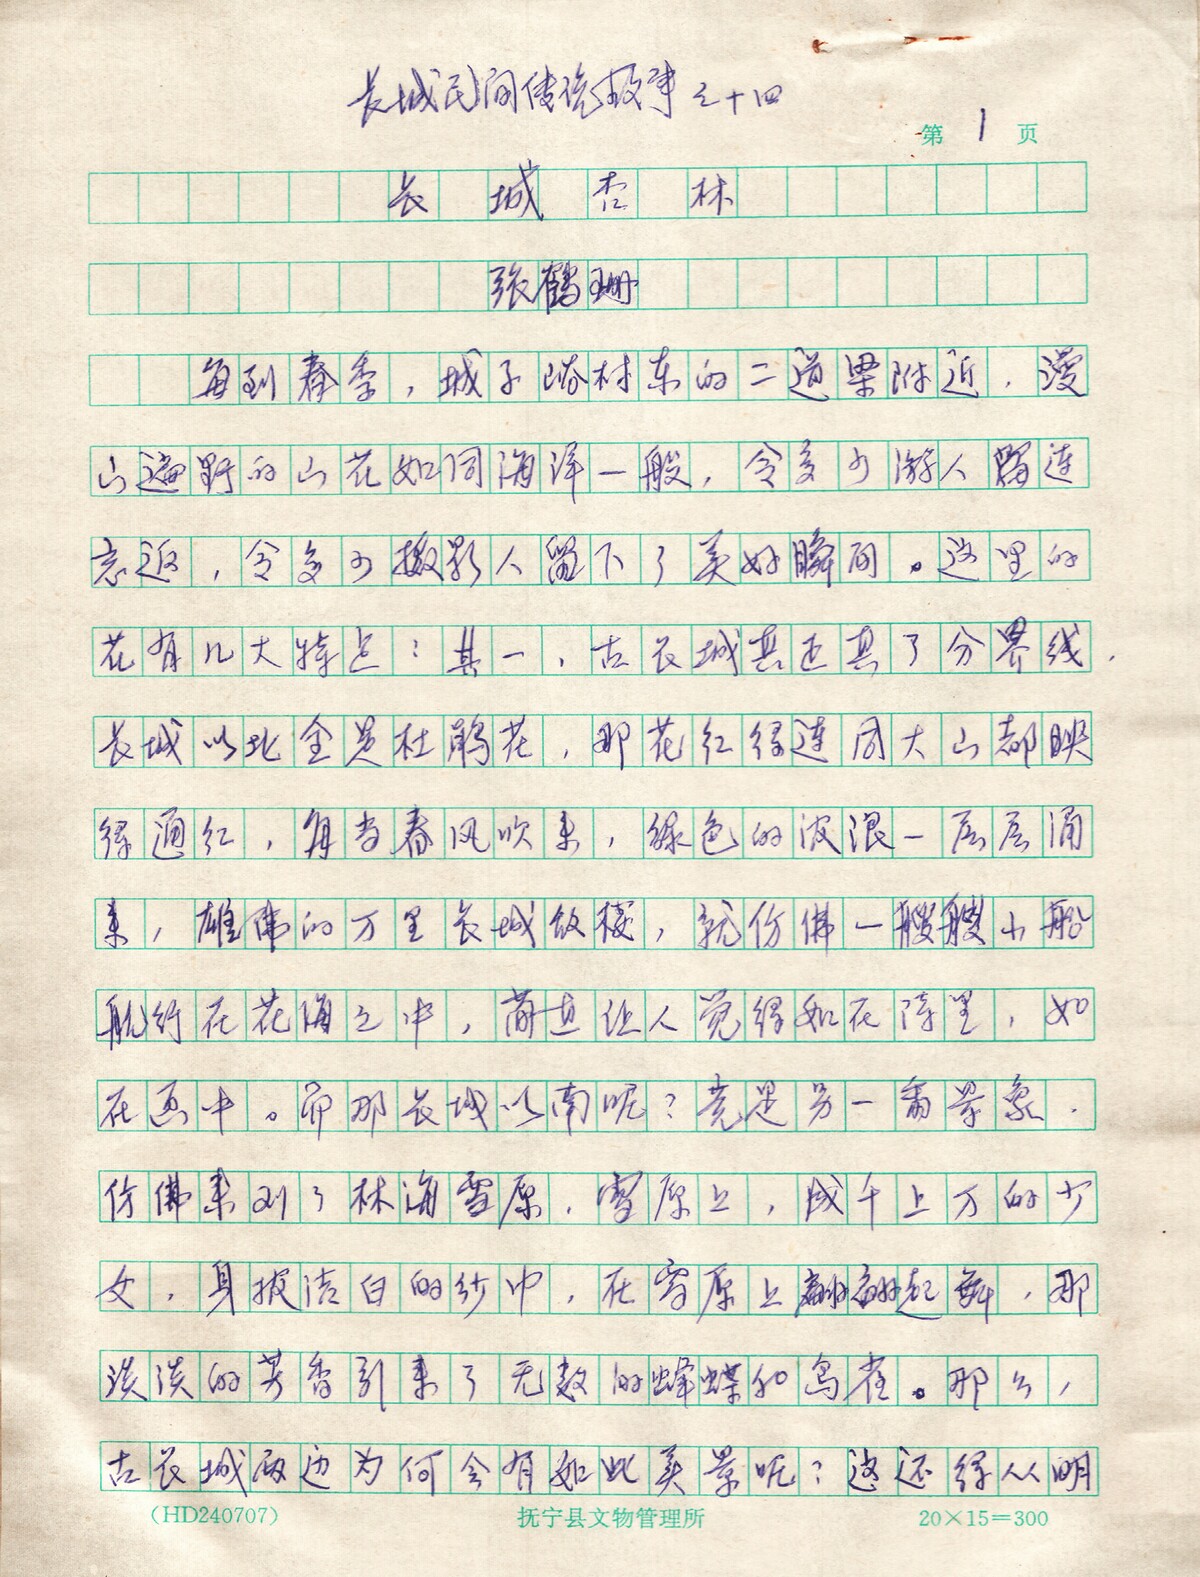 长城民间传说故事之十四
第1页
长城杏林
张鹤珊
每到春季，城子峪村东的二道梁附近，漫
山遍野的山花如同海洋一般，令多少游人留连
忘返，令多少摄影人留下了美好瞬间。这里的
花有几大特点：其一，古长城其还具了分界线，
长城以北全是杜鹃花，那花红得连周大山都映
得通红，每当春风吹来，绿色的波浪一层层涌
来，雄伟的万里长城敌楼，就仿佛一艘艘小船
航行在花海之中，简直让人觉得如在诗里，如
在画中。而那长城以南呢？竟是另一番景象，
仿佛来到了林海雪原，雪原上，成千上万的少
女，身披洁白的纱巾，在雪原上翩翩起舞，那
淡淡的芳香引来了无数的蜂蝶和鸟雀。那么，
古长城两边为何会有如此美景呢？这还得从明
（HD240707）
抚宁县文物管理所
20×15＝300